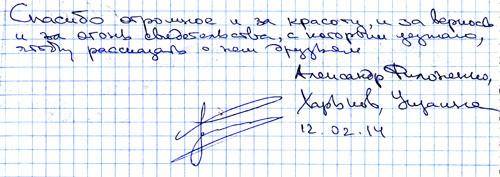 Спасибо огромное и за красоту, и за верность
и за огонь свидетельства, с которым уезжаю,
чтобы рассказать о нем друзьям
Александр Филоненко,
Харьков, Украина
12.02.14